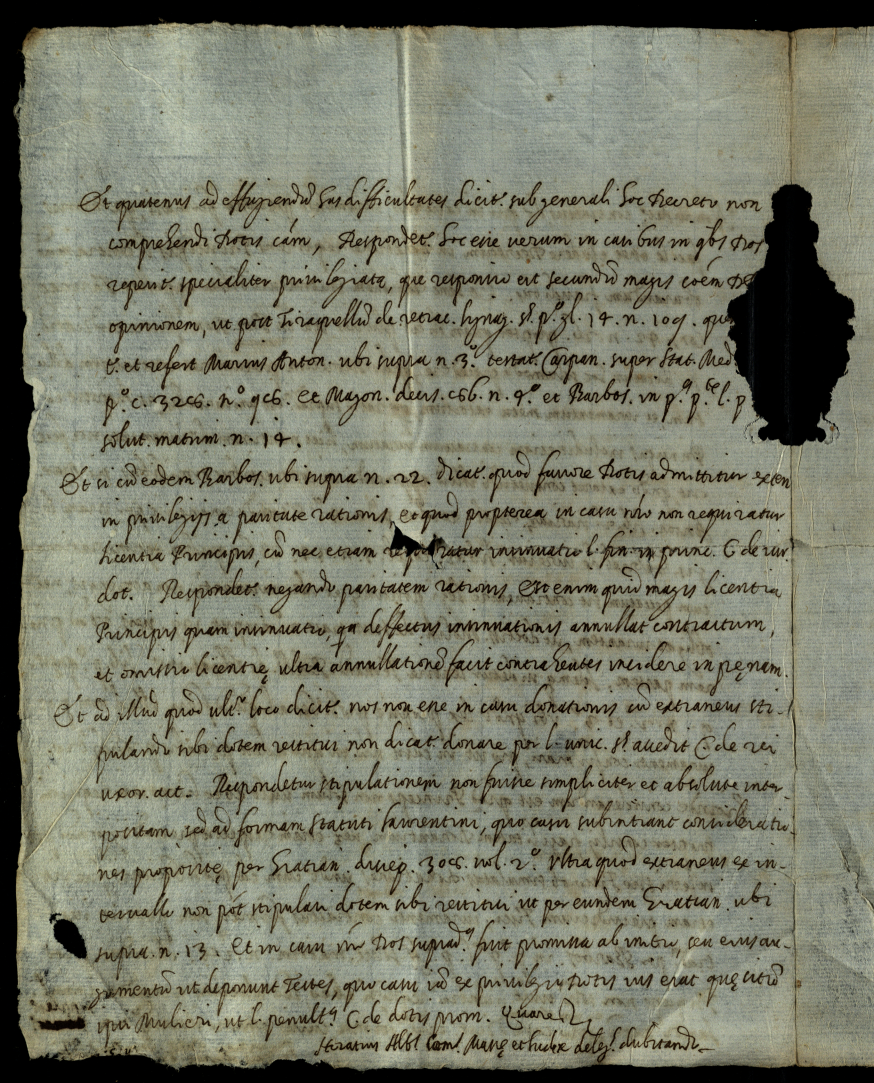 Et quatenus ad effugiendũ has difficultates dicit.ʳ sub generali hoc Decreto non
comprehendi Dotis cãm, Respondet.ʳ hoc esse verum in casibus in qbs Dos
reperit.ʳ specialiter privilegiata, que responsio est secundũ magis coẽm
opinionem, ut post Tiraquellũ de retrac. lignag. §. p.º gl. 14. n. 109.
et refert Marius Anton. ubi supra n. 3.º testat.ʳ Carpan. super Stat. Med
p.º c. 326. n.º 96. et Magon. decis. 56. n. 4.º et Barbos. in p.ª p.ᵗᵉ l. p
solut. matrim. n. 14.
Et si cũ eodem Barbos. ubi supra n. 22. dicat.ʳ quod favore Dotis admittitur exten
in privilegijs a paritate rationis, et quod propterea in casu nr̃o non requiratur
licentia Principis, cũ nec etiam insinuatio l. fin. in princ. C. de iur
dot. Respondet.ʳ negando paritatem rationis, Est enim quid magis licentia
Principis quam insinuatio, qa deffectus insinuationis annullat contractum,
et omissio licentię ultra annullationẽ facit contrahentes incidere in pęnam.
Et ad illud quod ult.º loco dicit.ʳ nos non esse in casu donationis cũ extraneus sti-
pulando sibi dotem restitui non dicat.ʳ donare per l. unic. §. accedit C. de rei
uxor. act. Respondetur stipulationem non fuisse simpliciter et absolute inter-
positam sed ad formam Statuti, quo casu subintrant consideratio-
nes propositę per Gratian. discep. 306. vol. 2.º Ultra quod extraneus ex in-
tervallo non põt stipulari dotem sibi restitui ut per eundem Gratian. ubi
supra n. 13. Et in casu nr̃o Dos suprad.ª fuit promissa ab initio, seu eius au-
gumentũ ut deponunt Testes, quo casu ex privilegio Dotis ius erat quęsitũ
ipsi Mulieri, ut l. penult.ª C. de dotis prom. Quare &
Horatius et Iudex deleg.ˢ dubitando